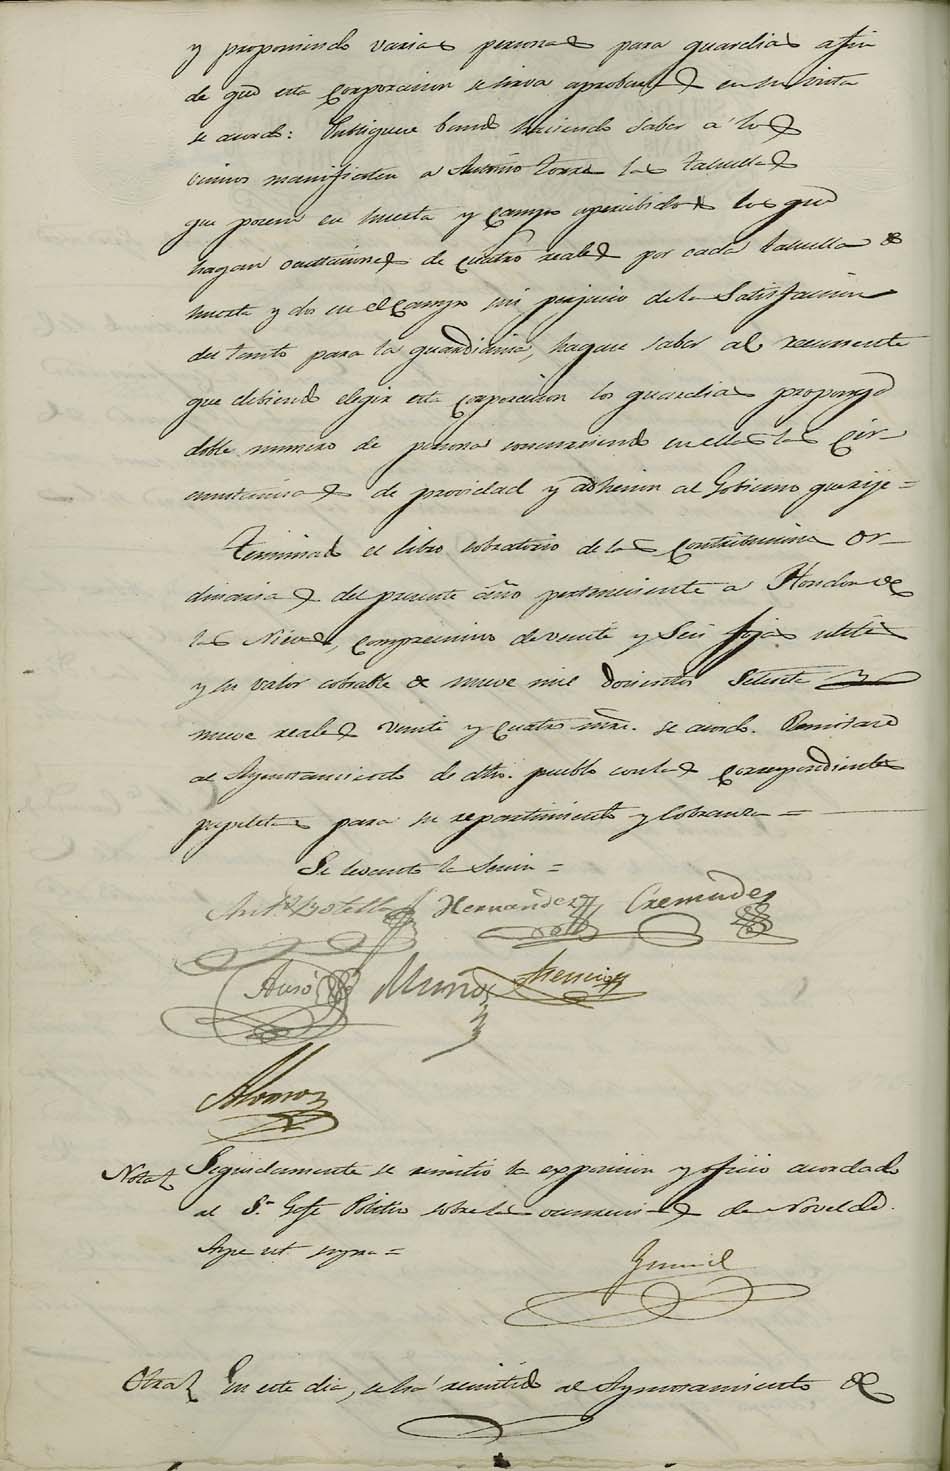 y proponiendo varias personas para guardias a fin
de qe esta Corporacion se sirva aprobarlas en su vista
se acordó: Publiquese bando haciendo saber a los
vecinos manifiesten a Antonio Torres las tahullas
que poseen en huerta y campo apercibidos los qe
hagan ocultaciones de cuatro reales por cada tahulla de
huerta y dos en el campo sin perjuicio de la Satisfaccion
del tanto para la guardiania, hagase saber al recurrente
que debiendo elegir esta corporacion los guardias proponga
doble numero de personas concurriendo en ellas las Cir-
cunstancias de providad y adhesion al Gobierno que rije =
Terminado el libro cobratorio de las Contribuciones Or-
dinarias del presente año perteneciente a Hondon de
las Nieves, comprensivo de veinte y Seis fojas utiles
y su valor cobrable de nueve mil doscientos Setenta y
nueve reales veinte y cuatro mrs. se acordó. Remitase
al Ayuntamiento de dho. pueblo con las correspondientes
papeletas para su repartimiento y Cobranza =
Se levantó la Sesion =
Anto. Botella Hernandez Cremades
Ausó Muñoz
Alonso
Nota Seguidamente se remitio la exposicion y oficio acordado
al Sr. Gefe Politico sobre las ocurrencias de Novelda.
Aspe ut supra =
Otra En este dia, se ha remitido al Ayuntamiento de